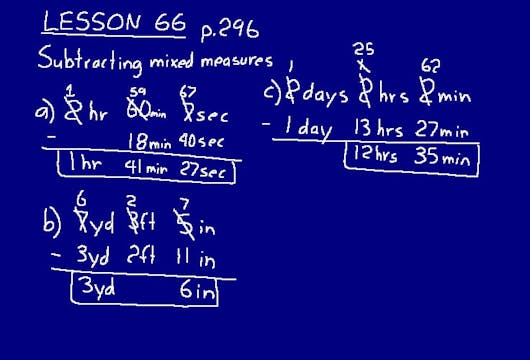 LESSON 66 p.296
Subtracting mixed measures
1 59 67
a) 2 hr 60 min 7 sec
- 18 min 40 sec
1 hr 41 min 27 sec
6 2 7
b) 7 yd 3 ft 5 in
- 3 yd 2 ft 11 in
3 yd 6 in
1 25 62
c) 2 days 2 hrs 2 min
- 1 day 13 hrs 27 min
12 hrs 35 min